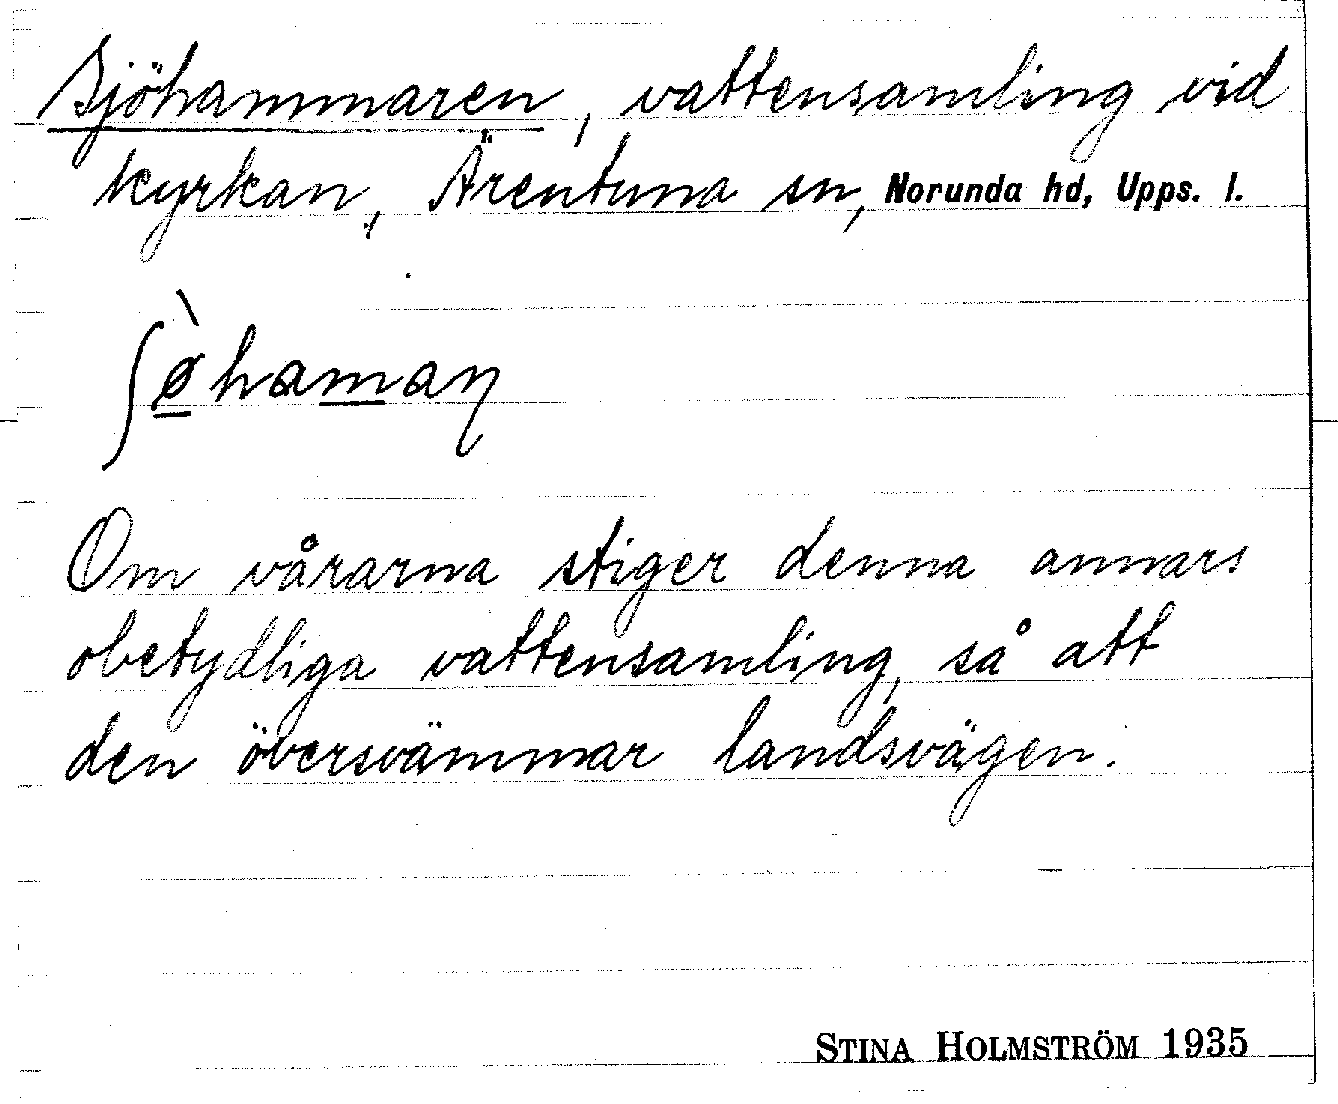 Sjöhammaren, vattensamling vid
kyrkan, Ärentuna sn, Norunda hd, Upps. l.
ʃø̀hamaɳ
Om vårarna stiger denna annars
obetydliga vattensamling, så att
den översvämmar landsvägen.
STINA HOLMSTRÖM 1935